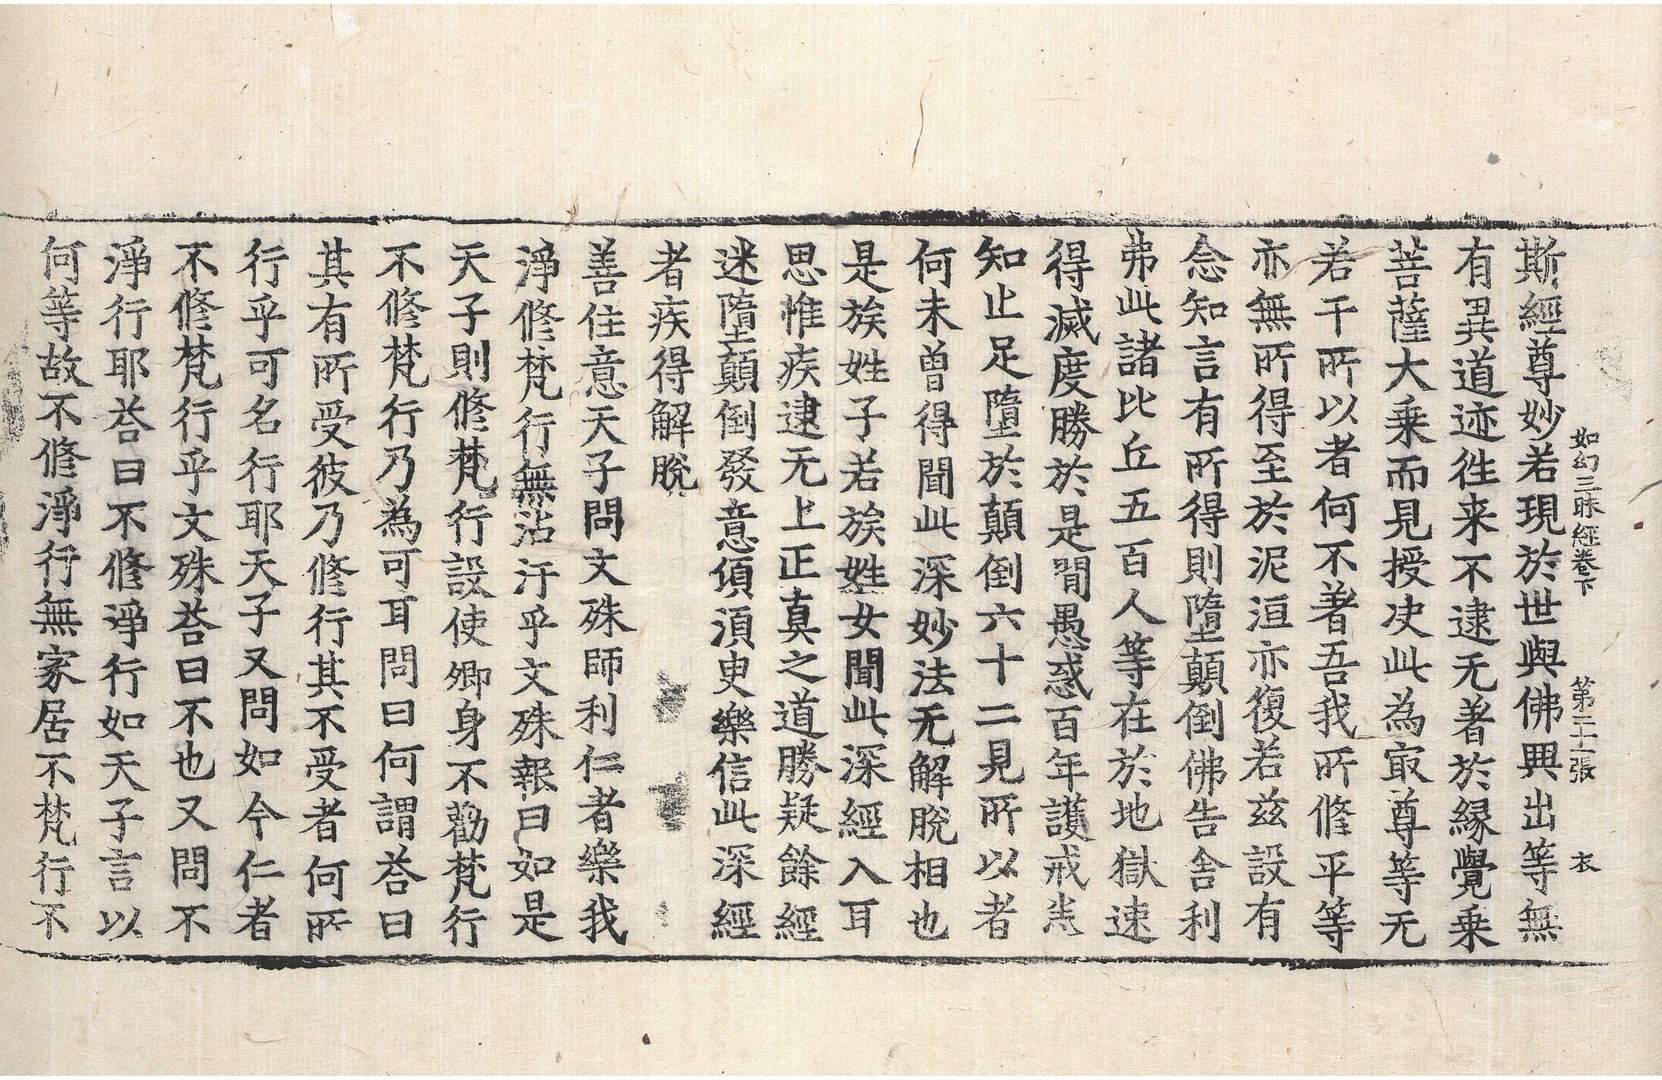 如幻三昧經卷下　第二十張　衣
斯經尊妙若現於世與佛興出等無
有異道迹徃来不逮无著於緣覺乗
菩薩大乗而見授决此為㝡尊等无
若干所以者何不著吾我所修平等
亦無所得至於泥洹亦復若兹設有
念知言有所得則墮顛倒佛告舍利
弗此諸比丘五百人等在於地獄速
得滅度勝於是閒愚惑百年護戒
知止足墮於顛倒六十二見所以者
何未曽得聞此深妙法无解脫相也
是族姓子若族姓女聞此深經入耳
思惟疾逮无上正真之道勝疑餘經
迷墮顛倒發意須臾樂信此深經
者疾得解脫
善住意天子問文殊師利仁者樂我
淨修梵行無沾汙乎文殊報曰如是
天子則修梵行設使卿身不勸梵行
不修梵行乃為可耳問曰何謂荅曰
其有所受彼乃修行其不受者何所
行乎可名行耶天子又問如今仁者
不修梵行乎文殊荅曰不也又問不
淨行耶荅曰不修淨行如天子言以
何等故不修淨行無家居不梵行不